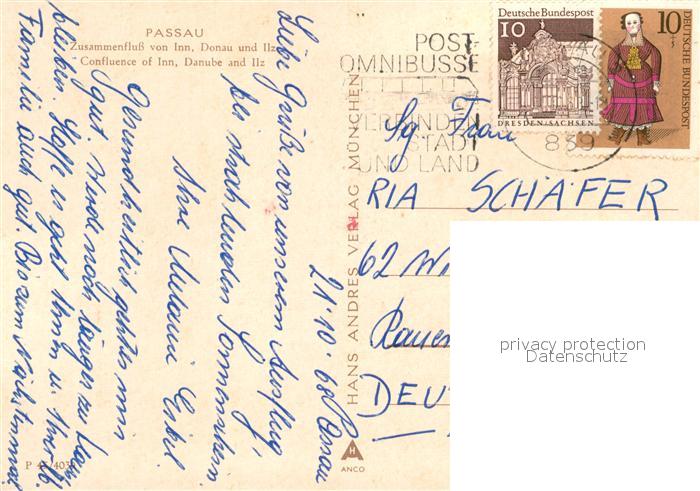 PASSAU
Zusammenfluß von Inn, Donau und Ilz
Confluence of Inn, Danube and Ilz
21.10.68 Passau
Liebe Grüße von unserem Ausflug
bei strahlendem Sonnenschein
Ihre Melanie
Gesundheitlich geht es mir
gut. Werde noch länger zu Hause
bleiben. Hoffe es geht Ihnen u. Ihrer lb.
Familie auch gut. Bis zum Nächstenmal
P 45/403
HANS ANDRES VERLAG MÜNCHEN
H
ANCO
POST-
OMNIBUSSE
VERBINDEN
STADT
UND LAND
839
Deutsche Bundespost
10
DRESDEN/SACHSEN
10
DEUTSCHE BUNDESPOST
Sg. Frau
RIA SCHÄFER
62 Wi
DEU
privacy protection
Datenschutz